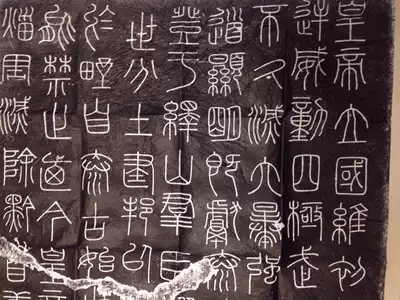 皇帝立國維初
逆威動四極武
不久滅六暴強
道顯明既獻泰
登于繹山羣臣
世分土建邦以
於野自泰古始
能禁止廼今皇
災害滅除黔首